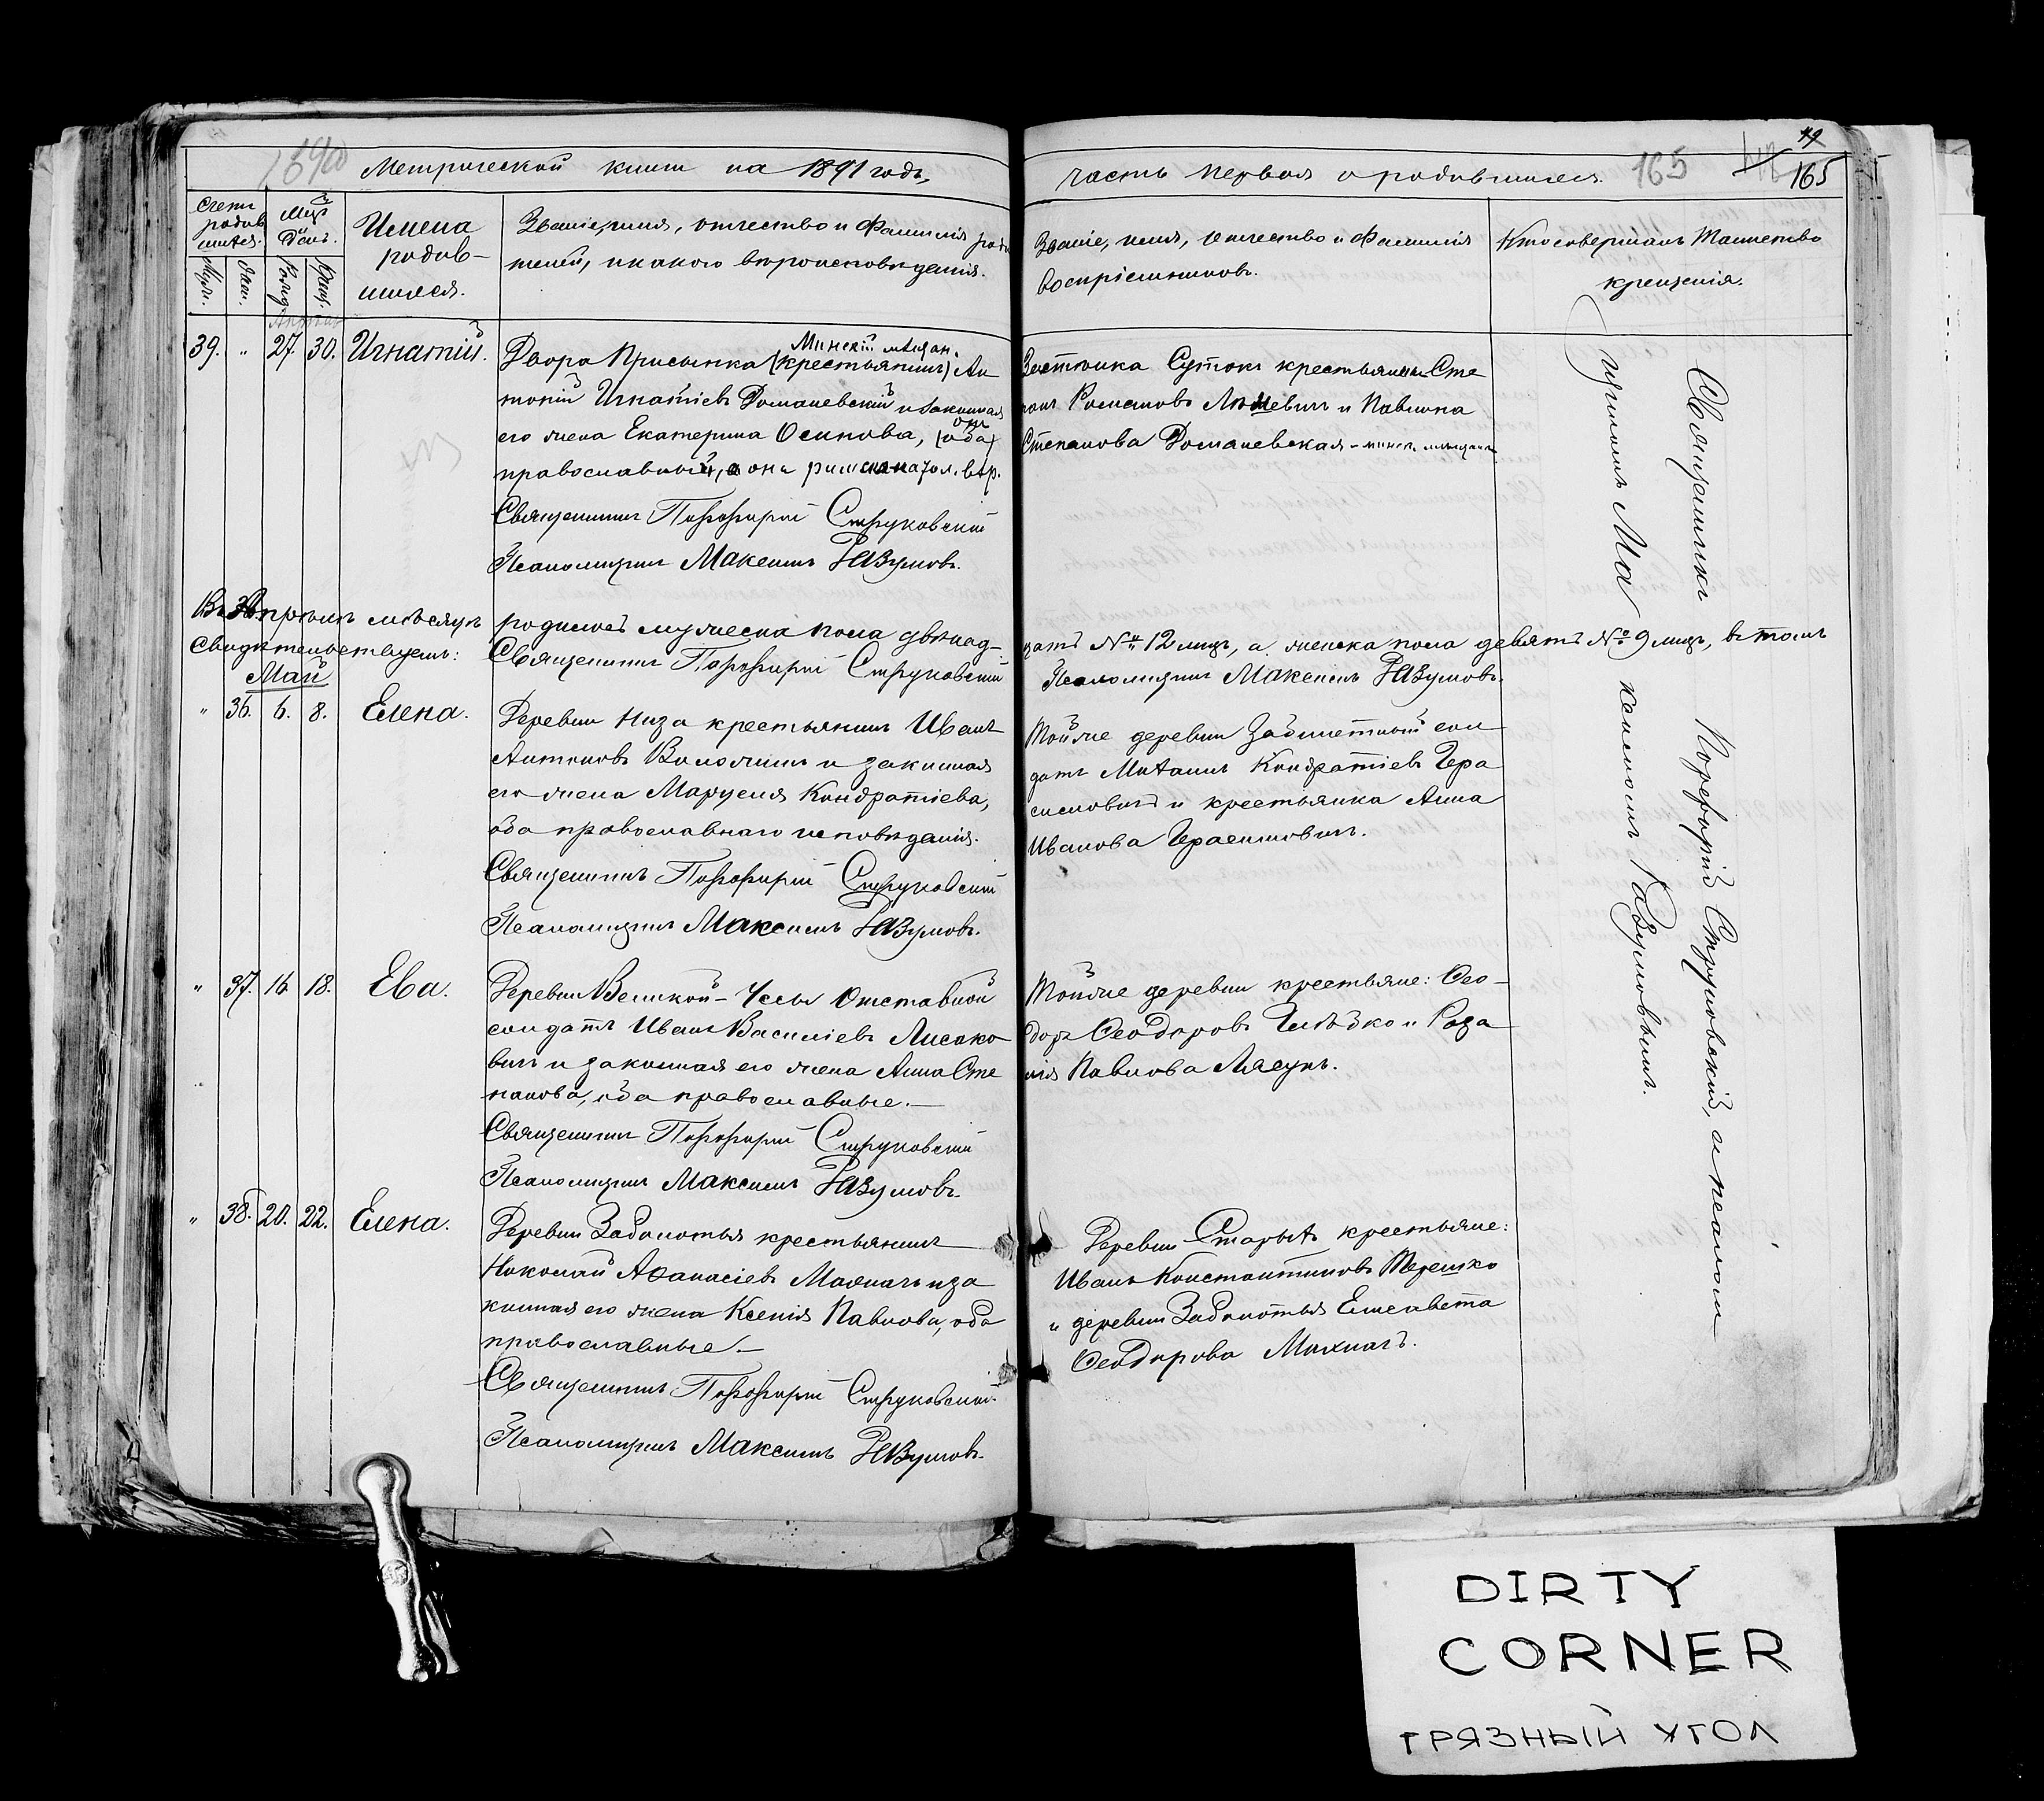 Метрической книги на 1891 годъ,
часть первая о родившихся.
165
165
Счетъ родив шихся.
Муж.
Жен.
Рожд.
Крещ.
Имена родив-
шихся.
Званіе, имя, отчество и фамилія роди
телей, и какого вѣроисповѣданія.
Званіе, имя, отчество и фамилія
воспріемниковъ.
Кто совершалъ Таинство
крещенія.
39. " 27. 30. Игнатій.
Двора Присынка (крестьянинъ) Ан
тоній Игнатіевъ Романевскій и законная
его жена Екатерина Осипова, (оба)
православный, а она римскокатол. вѣр.
Священникъ Порфирій Струковскій
Псаломщикъ Максимъ Разумовъ.
Застѣнка Сутокъ крестьянинъ Сте
Степанова Романевская - минск. мѣщанка
Въ Апрѣлѣ мѣсяцѣ родилось мужеска пола двѣнад-
цать № 12 лицъ, а женска пола девять № 9 лицъ, въ томъ
свидѣтельствуемъ: Священникъ Порфирій Струковскій
Псаломщикъ Максимъ Разумовъ.
Май
" 36. 6. 8. Елена.
Деревни Низа крестьянинъ Иванъ
Антоновъ Воложинъ и законная
его жена Марѳа Кондратіева,
оба православнаго исповѣданія.
Священникъ Порфирій Струковскій
Псаломщикъ Максимъ Разумовъ.
Той же деревни Забилетный сол
датъ Михаилъ Кондратіевъ Гера
симовичъ и крестьянка Анна
Иванова Герасимовичъ.
" 37. 16. 18. Ева.
Деревни Великой-Уссы Отставной
солдатъ Иванъ Василіевъ Лисако
вичъ и законная его жена Анна Сте
панова, оба православные.—
Священникъ Порфирій Струковскій
Псаломщикъ Максимъ Разумовъ.
Той же деревни крестьяне: Ѳео-
доръ Ѳеодоровъ Глѣбко и Роза
лія Павлова Лясунъ.
" 38. 20. 22. Елена.
Деревни Заболотья крестьянинъ
Николай Аѳанасіевъ Махначъ и за
конная его жена Ксенія Павлова, оба
православные.—
Священникъ Порфирій Струковскій.
Псаломщикъ Максимъ Разумовъ.
Деревни Старыхъ крестьяне:
Иванъ Константиновъ Терешко
и деревни Заболотья Елисавета
Ѳеодорова Махначъ.
Священникъ Порфирій Струковскій, а псалом
щикомъ Максимомъ Разумовымъ.
DIRTY
CORNER
ГРЯЗНЫЙ УГОЛ